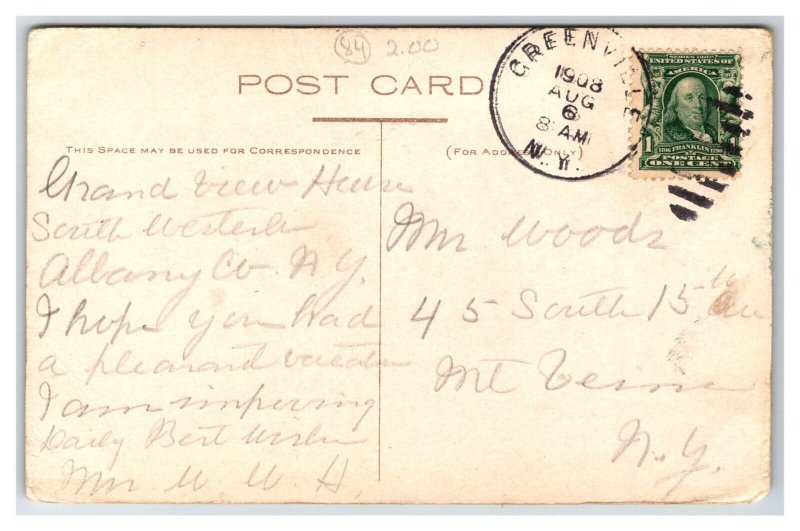 84 2.00
POST CARD
THIS SPACE MAY BE USED FOR CORRESPONDENCE
(FOR ADDRESS ONLY)
GREENVILLE
1908
AUG
6
8 AM
N.Y.
SERIES 1902
UNITED STATES OF
AMERICA
1706 FRANKLIN 1790
POSTAGE
1 ONE CENT
Grand View House
South Westerlo
Albany Co. N.Y.
I hope you had
a pleasant vacation
I am improving
Daily Best Wishes
Mr W. W. H.
Mr Woods
45 South 15th Ave
Mt Vernon
N.Y.